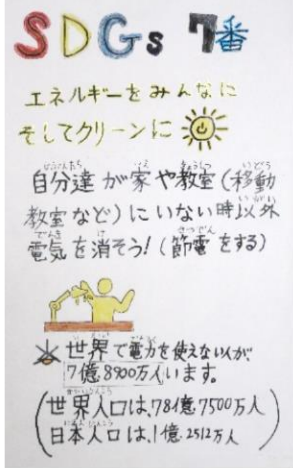 SDGs 7番
エネルギーをみんなに
そしてクリーンに
自分達が家や教室(移動
教室など)にいない時以外
電気を消そう!(節電をする)
世界で電力を使えない人が、
7億8900万人います。
(世界人口は、78億7500万人
日本人口は、1億2512万人)